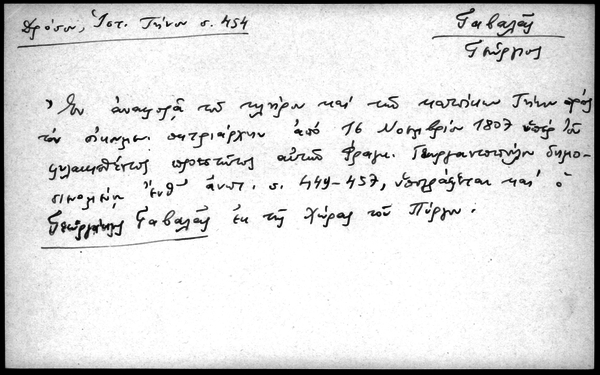 Δρόσου, Ἱστ. Τήνου σ. 454
Γαβαλᾶς
Γεώργιος
Ἐν ἀναφορᾷ τοῦ κλήρου καὶ τῶν κατοίκων Τήνου πρὸς
τὸν οἰκουμεν. πατριάρχην ἀπὸ 16 Νοεμβρίου 1807 ὑπὲρ τοῦ
φυλακισθέντος προεστῶτος αὐτῶν Φραγκ. Γεωργαντοπούλου δημο-
σιευομένῃ ἔνθ' ἀνωτ. σ. 449-457, ὑπογράφεται καὶ ὁ
Γεώργιος Γαβαλᾶς ἐκ τῆς Χώρας τοῦ Πύργου.